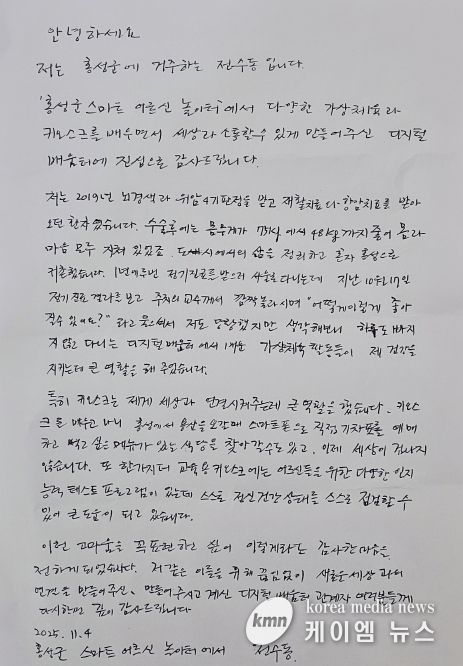 안녕하세요
저는 홍성군에 거주하는 전수동입니다.
'홍성군 스마트 어르신 놀이터'에서 다양한 가상체육과
키오스크를 배우면서 세상과 소통할 수 있게 만들어주신 디지털
배움터에 진심으로 감사드립니다.
저는 2019년 뇌경색과 위암4기판정을 받고 재활치료와 항암치료를 받아
오던 환자였습니다. 수술후에는 몸무게가 78kg에서 48kg까지 줄어 몸과
마음 모두 지쳐 있었죠. 도시에서의 삶을 정리하고 혼자 홍성으로
귀촌했습니다. 1년에 두번 정기진료를 받으러 서울로 다니는데 지난 10월 17일
정기진료 결과를 보고 주치의 교수께서 깜짝 놀라시며 "어떻게 이렇게 좋아
질 수 있어요?" 라고 물으셔서 저도 당황했지만 생각해보니 하루도 빠지
지 않고 다니는 디지털 배움터에서 배운 가상체육 활동들이 제 건강을
지키는데 큰 역할을 해 주었습니다.
특히 키오스크는 제게 세상과 연결시켜주는데 큰 역할을 했습니다. 키오스
크를 배우고 나니 홍성에서 용산을 오갈때 스마트폰으로 직접 기차표를 예매
하고 먹고 싶은 메뉴가 있는 식당을 찾아갈수도 있고, 이제 세상이 겁나지
않습니다. 또 한가지더 교육용 키오스크에는 어르신들을 위한 다양한 인지
능력 테스트 프로그램이 있는데 스스로 정신건강 상태를 스스로 점검할 수
있어 큰 도움이 되고 있습니다.
이런 고마움을 꼭 표현하고 싶어 이렇게라도 감사한 마음을
전하게 되었습니다. 저 같은 이들을 위해 끊임없이 새로운 세상과의
연결을 만들어주신, 만들어주시고 계신 디지털 배움터 관계자 여러분들께
다시한번 깊이 감사드립니다
2025. 11. 4
홍성군 스마트 어르신 놀이터에서 전수동.
kmn korea media news
케이엠 뉴스